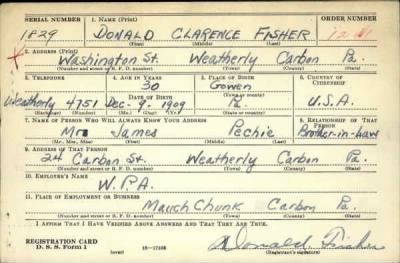 SERIAL NUMBER 1. NAME (Print) ORDER NUMBER
1829 DONALD CLARENCE FISHER
(First) (Middle) (Last)
2. ADDRESS (Print)
Washington St. Weatherly Carbon Pa.
(Number and street or R. F. D. number) (Town) (County) (State)
3. TELEPHONE 4. AGE IN YEARS 5. PLACE OF BIRTH 6. COUNTRY OF CITIZENSHIP
30 Gowen
DATE OF BIRTH (Town or county)
Weatherly 4751 Dec. 9. 1909 Pa. U.S.A.
(Exchange) (Number) (Mo.) (Day) (Yr.) (State or country)
7. NAME OF PERSON WHO WILL ALWAYS KNOW YOUR ADDRESS 8. RELATIONSHIP OF THAT PERSON
Mr James Pechie Brother-in-law
(Mr., Mrs., Miss) (First) (Middle) (Last)
9. ADDRESS OF THAT PERSON
24 Carbon St. Weatherly Carbon Pa.
(Number and street or R. F. D. number) (Town) (County) (State)
10. EMPLOYER'S NAME
W.P.A.
11. PLACE OF EMPLOYMENT OR BUSINESS
Mauch Chunk Carbon Pa.
(Number and street or R. F. D. number) (Town) (County) (State)
I AFFIRM THAT I HAVE VERIFIED ABOVE ANSWERS AND THAT THEY ARE TRUE.
REGISTRATION CARD
D. S. S. Form 1 (over) Donald Fisher
(Registrant's signature)